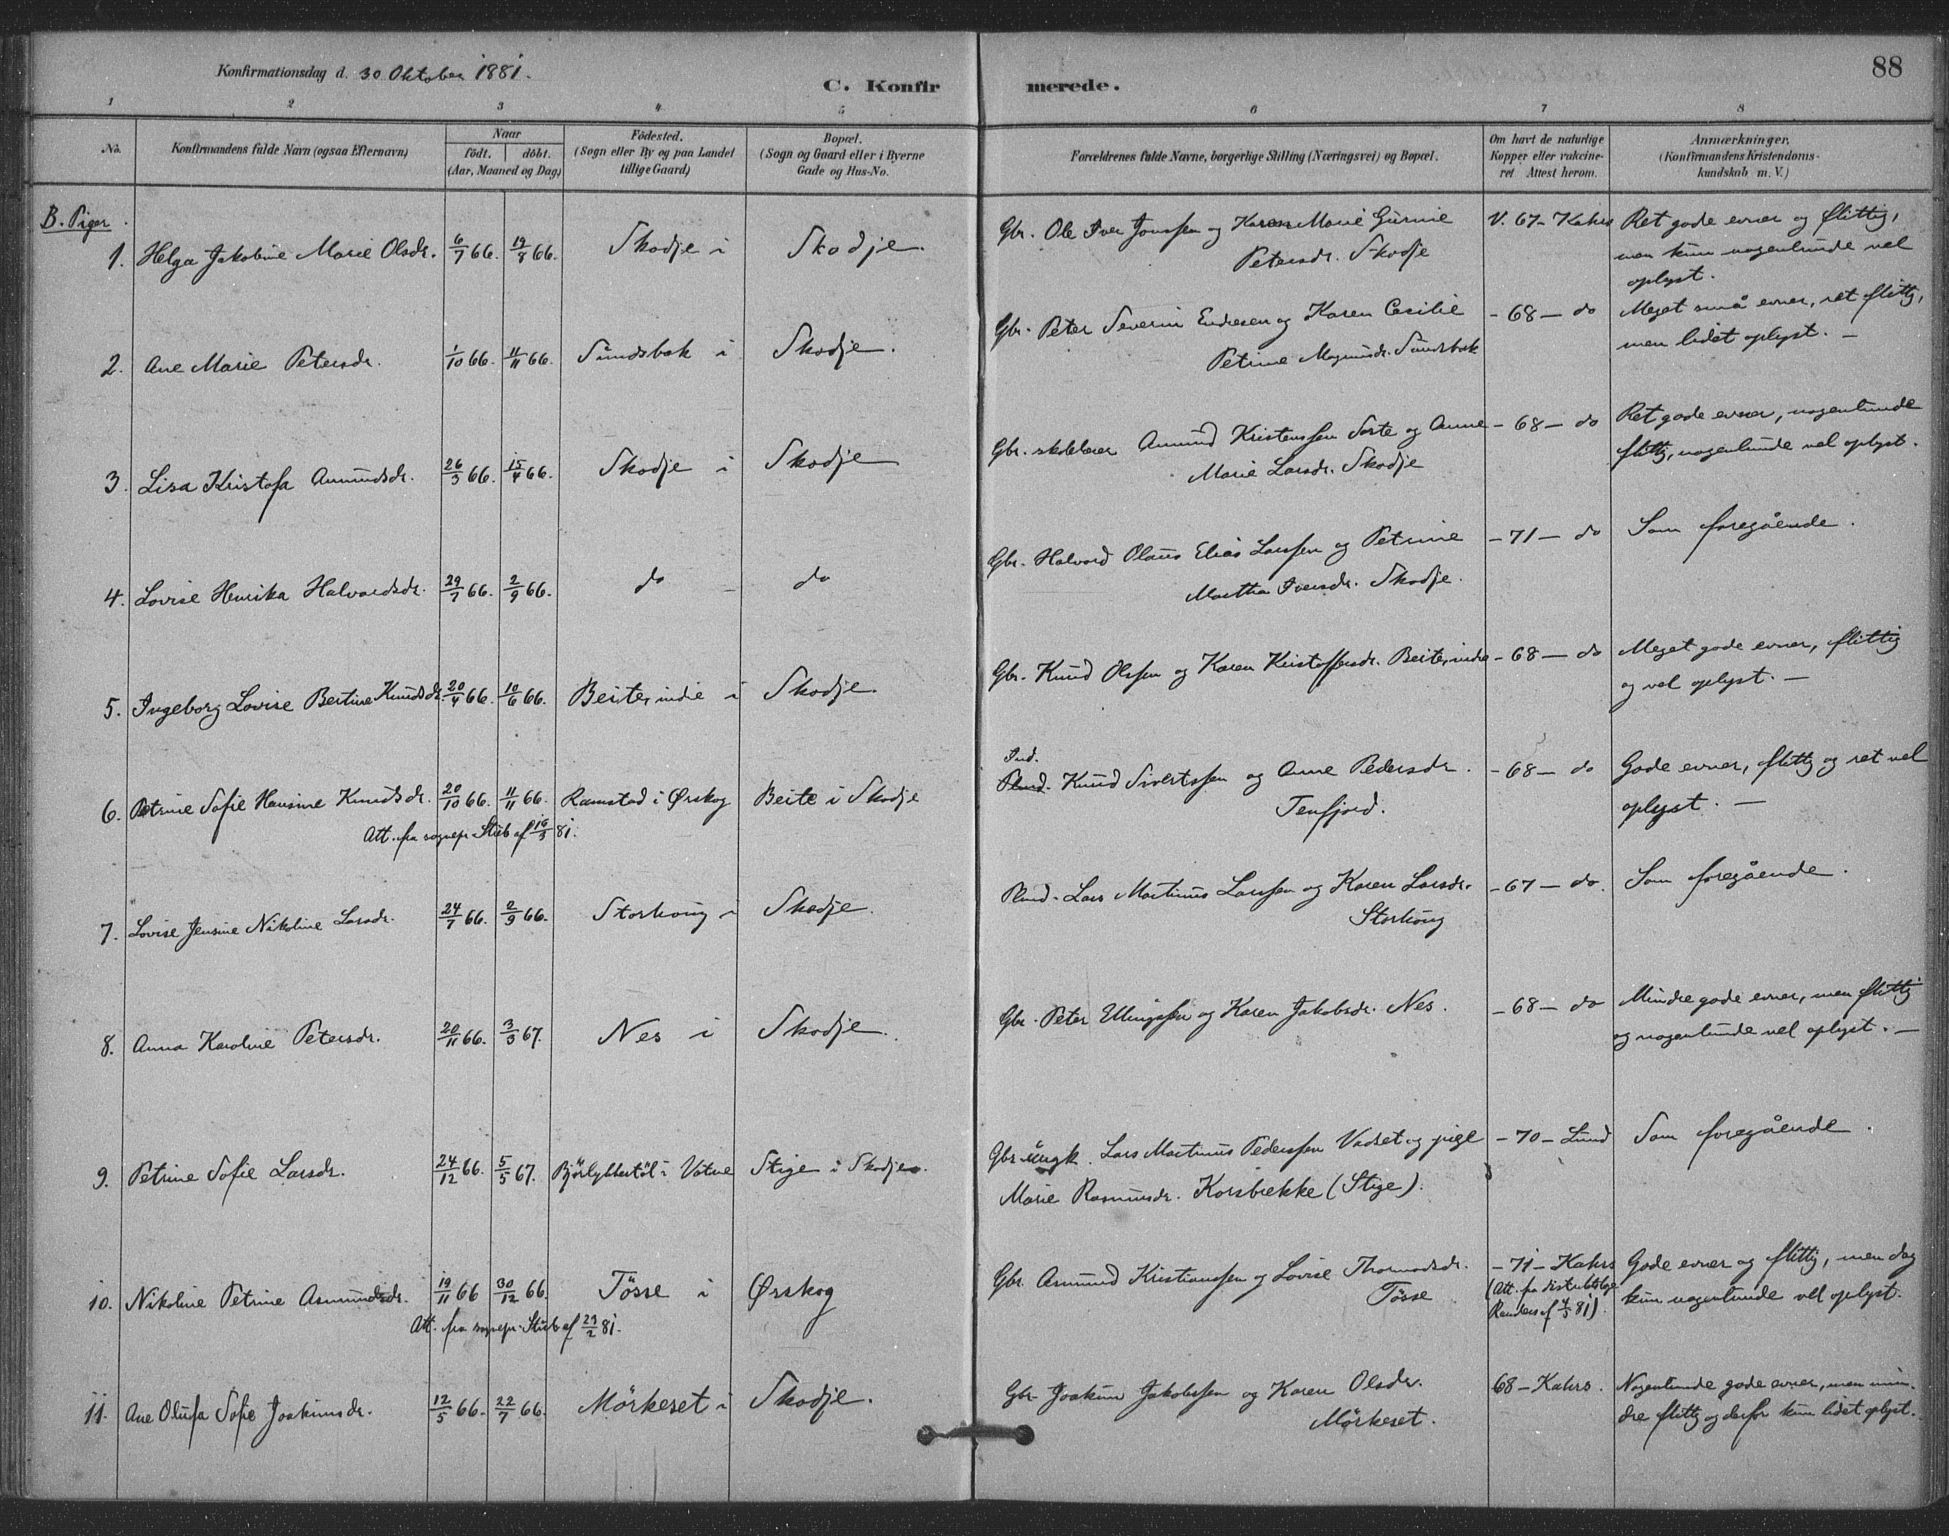 Konfirmationsdag d. 30 Oktober 1881.
C. Konfirmerede.
88
1 2 3 4 5 6 7 8
No.
Konfirmandens fulde Navn (ogsaa Efternavn)
Naar
födt. döbt.
(Aar, Maaned og Dag)
Födested.
(Sogn eller By og paa Landet
tillige Gaard)
Bopæl.
(Sogn og Gaard eller i Byerne
Gade og Hus-No.
Forældrenes fulde Navne, borgerlige Stilling (Næringsvei) og Bopæl.
Om havt de naturlige
Kopper eller vakcine-
ret Attest herom.
Anmærkninger.
(Konfirmandens Kristendoms-
kundskab m. V.)
B. Piger.
1. Helga Jakobine Marie Olsdr. 6/7 66. 19/8 66. Skodje i Skodje. Gbr. Ole Iver Jonssen og Karen Marie Gurine V. 67 - Kahrs Ret gode evner og flittig,
Petersdr. Skodje men kun nogenlunde vel
oplyst.
2. Ane Marie Petersdr. 1/10 66. 11/11 66. Sundsbak i Skodje. Gbr. Peter Severin Endresen og Karen Cecilie - 68 - do Meget små evner, ret flittig,
Petrine Magnusdr. Sundsbak men lidet oplyst. -
3. Lisa Kristofa Amundsdr. 26/3 66. 15/4 66. Skodje i Skodje Gbr. skolelærer Amund Kristenssen Sorte og Anne - 68 - do Ret gode evner, nogenlunde
Marie Larsdr. Skodje flittig, nogenlunde vel oplyst.
4. Lovise Henrika Halvardsdr. 29/7 66. 2/9 66. do - do Gbr. Halvard Olaus Elias Larssen og Petrine - 71 - do Som foregående.
Martha Iversdr. Skodje.
5. Ingeborg Lovise Bertine Knudsdr. 20/4 66. 10/6 66. Beite, indre i Skodje. Gbr. Knud Olssen og Karen Kristoffersdr. Beite, indre - 68 - do Meget gode evner, flittig
og vel oplyst. -
6. Petrine Sofie Hansine Knudsdr. 20/10 66. 11/11 66. Ramstad i Ørskog Beite i Skodje Ind. Knud Sivertssen og Anne Pedersdr. - 68 - do Gode evner, flittig og ret vel
Att. fra sognepr. Stub af 16/3 81. Tenfjord. oplyst. -
7. Lovise Jensine Nikoline Larsdr. 24/7 66. 2/9 66. Storhoug i Skodje. Plmd. Lars Martinus Larssen og Karen Larsdr. - 67 - do. Som foregående.
Storhoug
8. Anna Karoline Petersdr. 20/11 66. 3/3 67. Nes i Skodje. Gbr. Peter Ellingssen og Karen Jakobsdr. Nes. - 68 - do Mindre gode evner, men flittig
og nogenlunde vel oplyst. -
9. Petrine Sofie Larsdr. 24/12 66. 5/5 67. i Vatne Stige i Skodje. Gbr. ungk. Lars Martinus Pederssen Vadset og pige - 70 - Lund Som foregående.
Marie Rasmusdr. Korsbrekke (Stige).
10. Nikoline Petrine Asmundsdr. 19/11 66 30/12 66. Tösse i Ørskog Gbr. Asmund Kristianssen og Lovise Thormodsdr. - 71 - Kahrs Gode evner og flittig, men dog
Att. fra sognepr. Stub af 23/2 81. Tösse (Att. fra distriktslæge kun nogenlunde vel oplyst.
Randers af 4/5 81).
11. Ane Olufa Sofie Joakimsdr. 12/5 66. 22/7 66. Mörkeset i Skodje. Gbr. Joakim Jakobssen og Karen Olsdr. 68 - Kahrs. Nogenlunde gode evner, men min-
Mörkeset. dre flittig og derfor kun lidet oplyst.